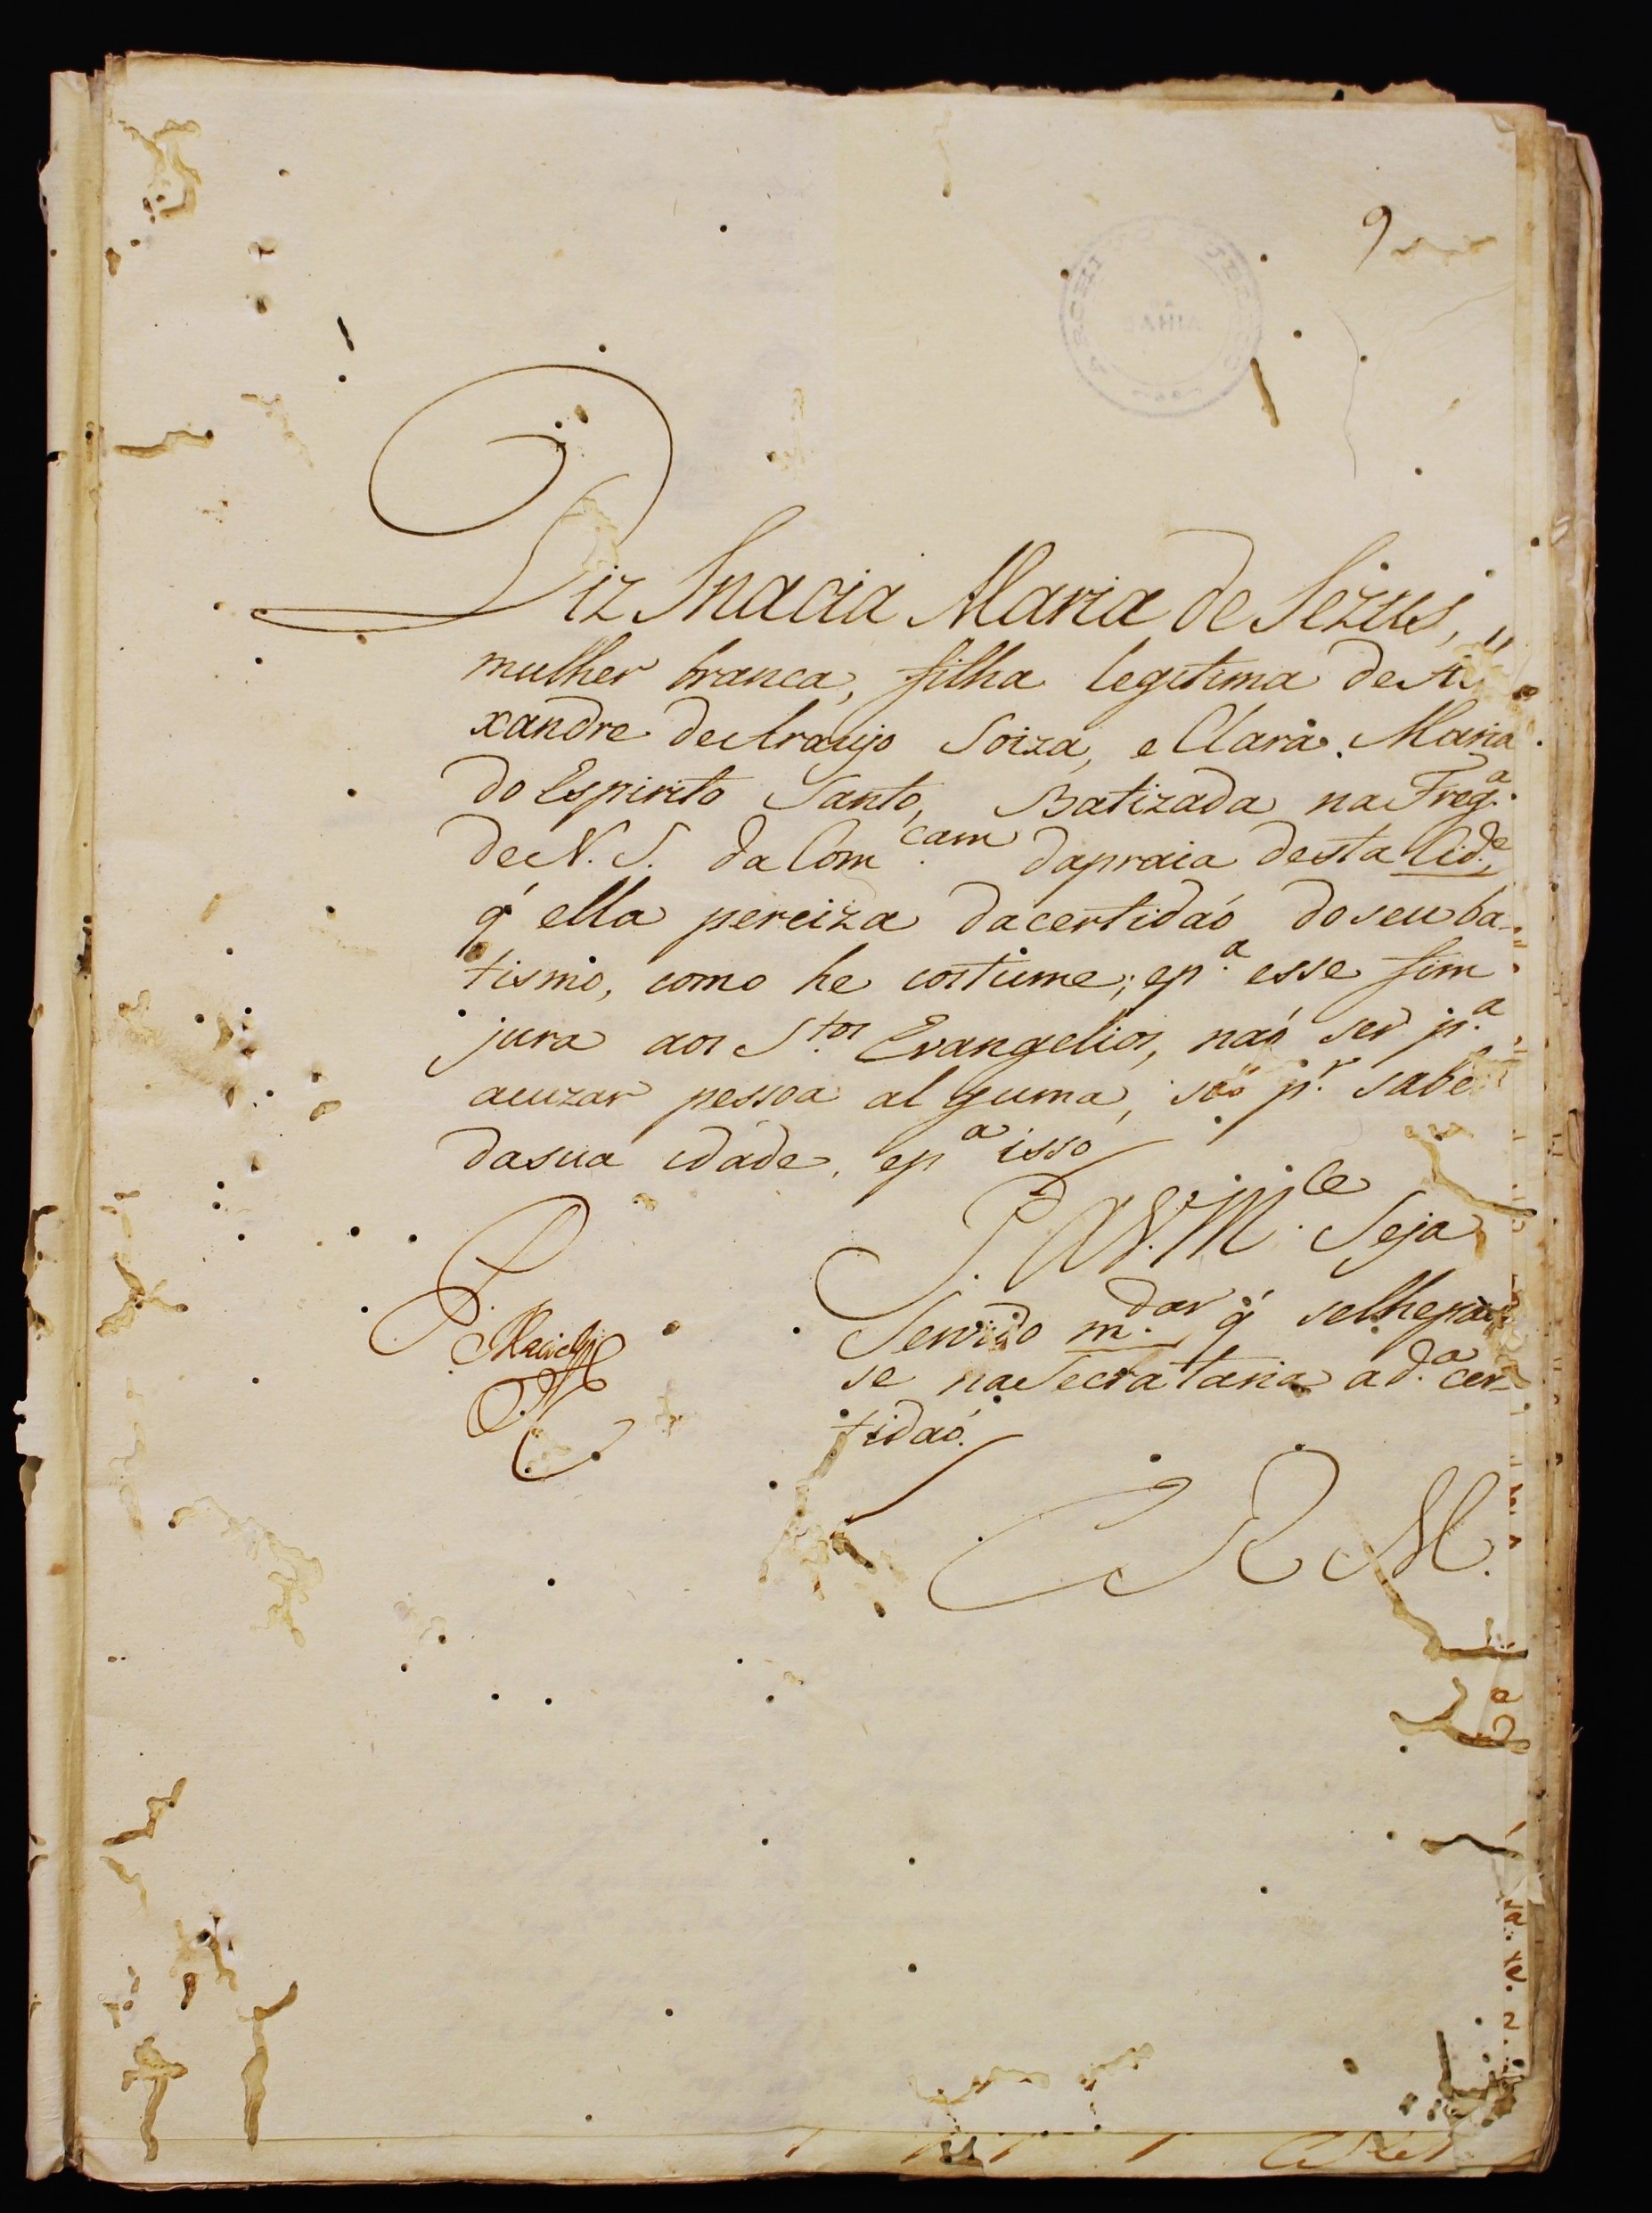 9
Diz Inacia Maria de Jezus,
mulher branca, filha legitima de Al
xandre de Araujo Soiza, e Clara Maria
do Espirito Santo, Batizada na Freg.ª
de N. S. da Com.cam da praia desta Cid.e,
q' ella perciza da certidaó do seu ba-
tismo, como he costume; e p.ª esse fim
jura aos S.tos Evangelios, naó ser p.ª
acuzar pessoa al guma, só p.r saber
da sua idade, e p.ª isso
P. a V. M.ce Seja
Servido m.dar q' se lhe pas
se na Secrataria a d.ª cer-
tidaó.
P.
Maciel
E R M.